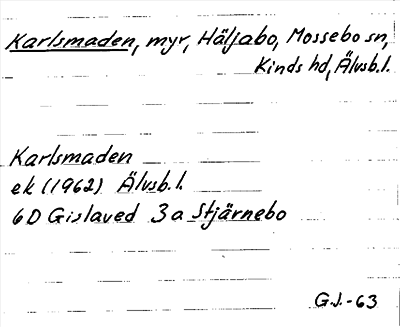 Karlsmaden, myr, Häljabo, Mossebo sn,
Kinds hd, Älvsb.l.
Karlsmaden
ek (1962) Älvsb.l.
6D Gislaved 3a Stjärnebo
G.J.-63